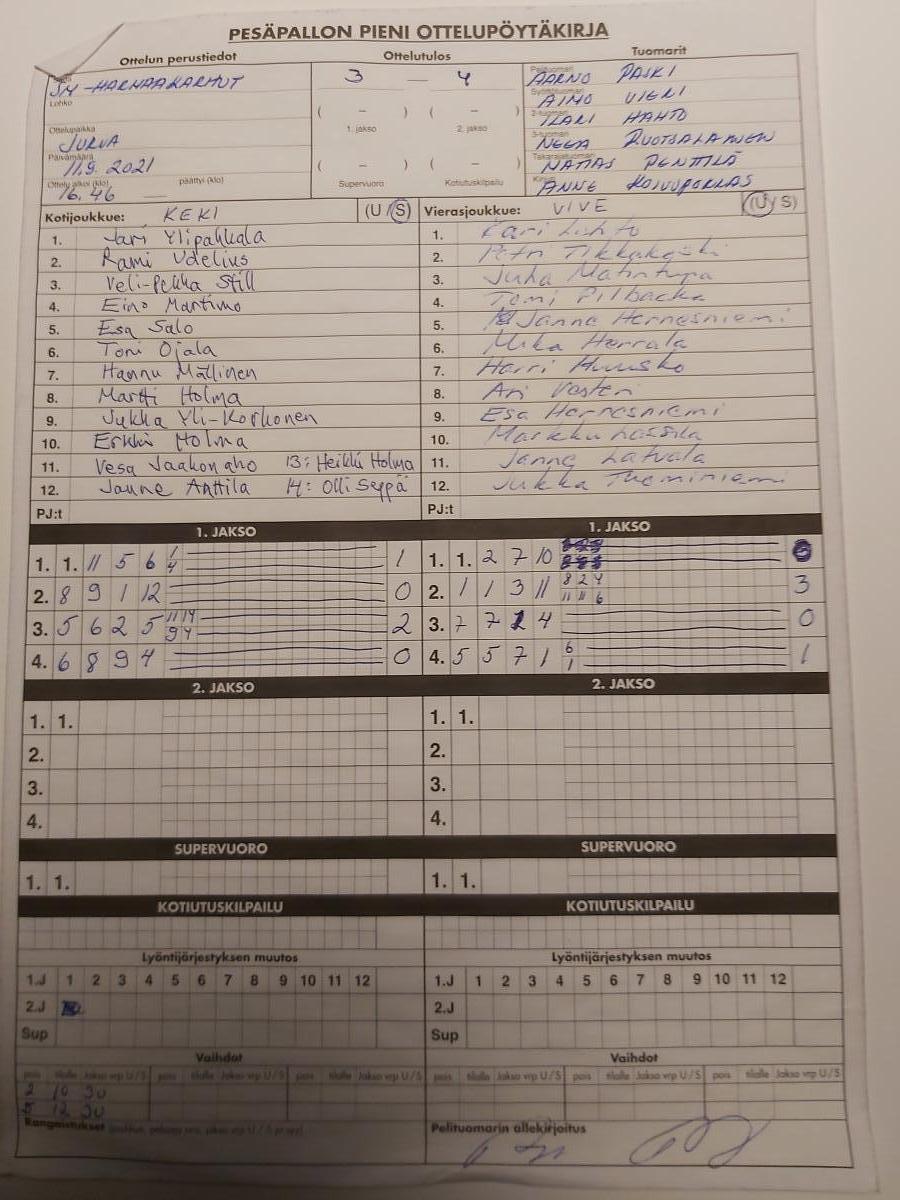 PESÄPALLON PIENI OTTELUPÖYTÄKIRJA
Ottelun perustiedot Ottelutulos Tuomarit
SM-HARMAAKARHUT 3 — 4 Pelituomari AARNO PASKI
Lohko Syöttötuomari AIMO VIERI
( – ) ( – ) 2-tuomari ILARI HAHTO
Ottelupaikka 1. jakso 2. jakso
JURVA 3-tuomari NEEA RUOTSALAINEN
Päivämäärä 11.9.2021 ( – ) ( – ) Takarajatuomari PENTTILÄ
Ottelu alkoi (klo) päättyi (klo) Supervuoro Kotiutuskilpailu
16.46 ANNE KOIVUPORRAS
Kotijoukkue: KEKI (U / S) Vierasjoukkue: VIVE (U / S)
1. Jari Ylipahkala 1. Kari Luhto
2. Rami Udelius 2. Petri Tikkakoski
3. Veli-Pekka Still 3. Juha Matintupa
4. Eino Martimo 4. Tomi Pilbacka
5. Esa Salo 5. Janne Hernesniemi
6. Toni Ojala 6. Mika Herrala
7. Hannu Mällinen 7. Harri Huusko
8. Martti Holma 8. Ari Vesteri
9. Jukka Yli-Korhonen 9. Esa Hernesniemi
10. Erkki Holma 10. Markku Lassila
11. Vesa Jaakonaho 13: Heikki Holma 11. Janne Latvala
12. Janne Anttila 14: Olli Seppä 12. Jukka Tuominiemi
PJ:t PJ:t
1. JAKSO 1. JAKSO
1. 1. 11 5 6 1 4 1 1. 1. 2 7 10 0
2. 8 9 1 12 0 2. 1 1 3 11 8 2 4 11 11 6 3
3. 5 6 2 5 11 14 9 4 2 3. 7 7 2 4 0
4. 6 8 9 4 0 4. 5 5 7 1 6 1 1
2. JAKSO 2. JAKSO
1. 1. 1. 1.
2. 2.
3. 3.
4. 4.
SUPERVUORO SUPERVUORO
1. 1. 1. 1.
KOTIUTUSKILPAILU KOTIUTUSKILPAILU
Lyöntijärjestyksen muutos Lyöntijärjestyksen muutos
1.J 1 2 3 4 5 6 7 8 9 10 11 12 1.J 1 2 3 4 5 6 7 8 9 10 11 12
2.J 2.J
Sup Sup
Vaihdot Vaihdot
pois tilalle Jakso vrp U/S pois tilalle Jakso vrp U/S pois tilalle Jakso vrp U/S pois tilalle Jakso vrp U/S pois tilalle Jakso vrp U/S pois tilalle Jakso vrp U/S
2 10 3U
5 12 3U
Rangaistukset Pelituomarin allekirjoitus